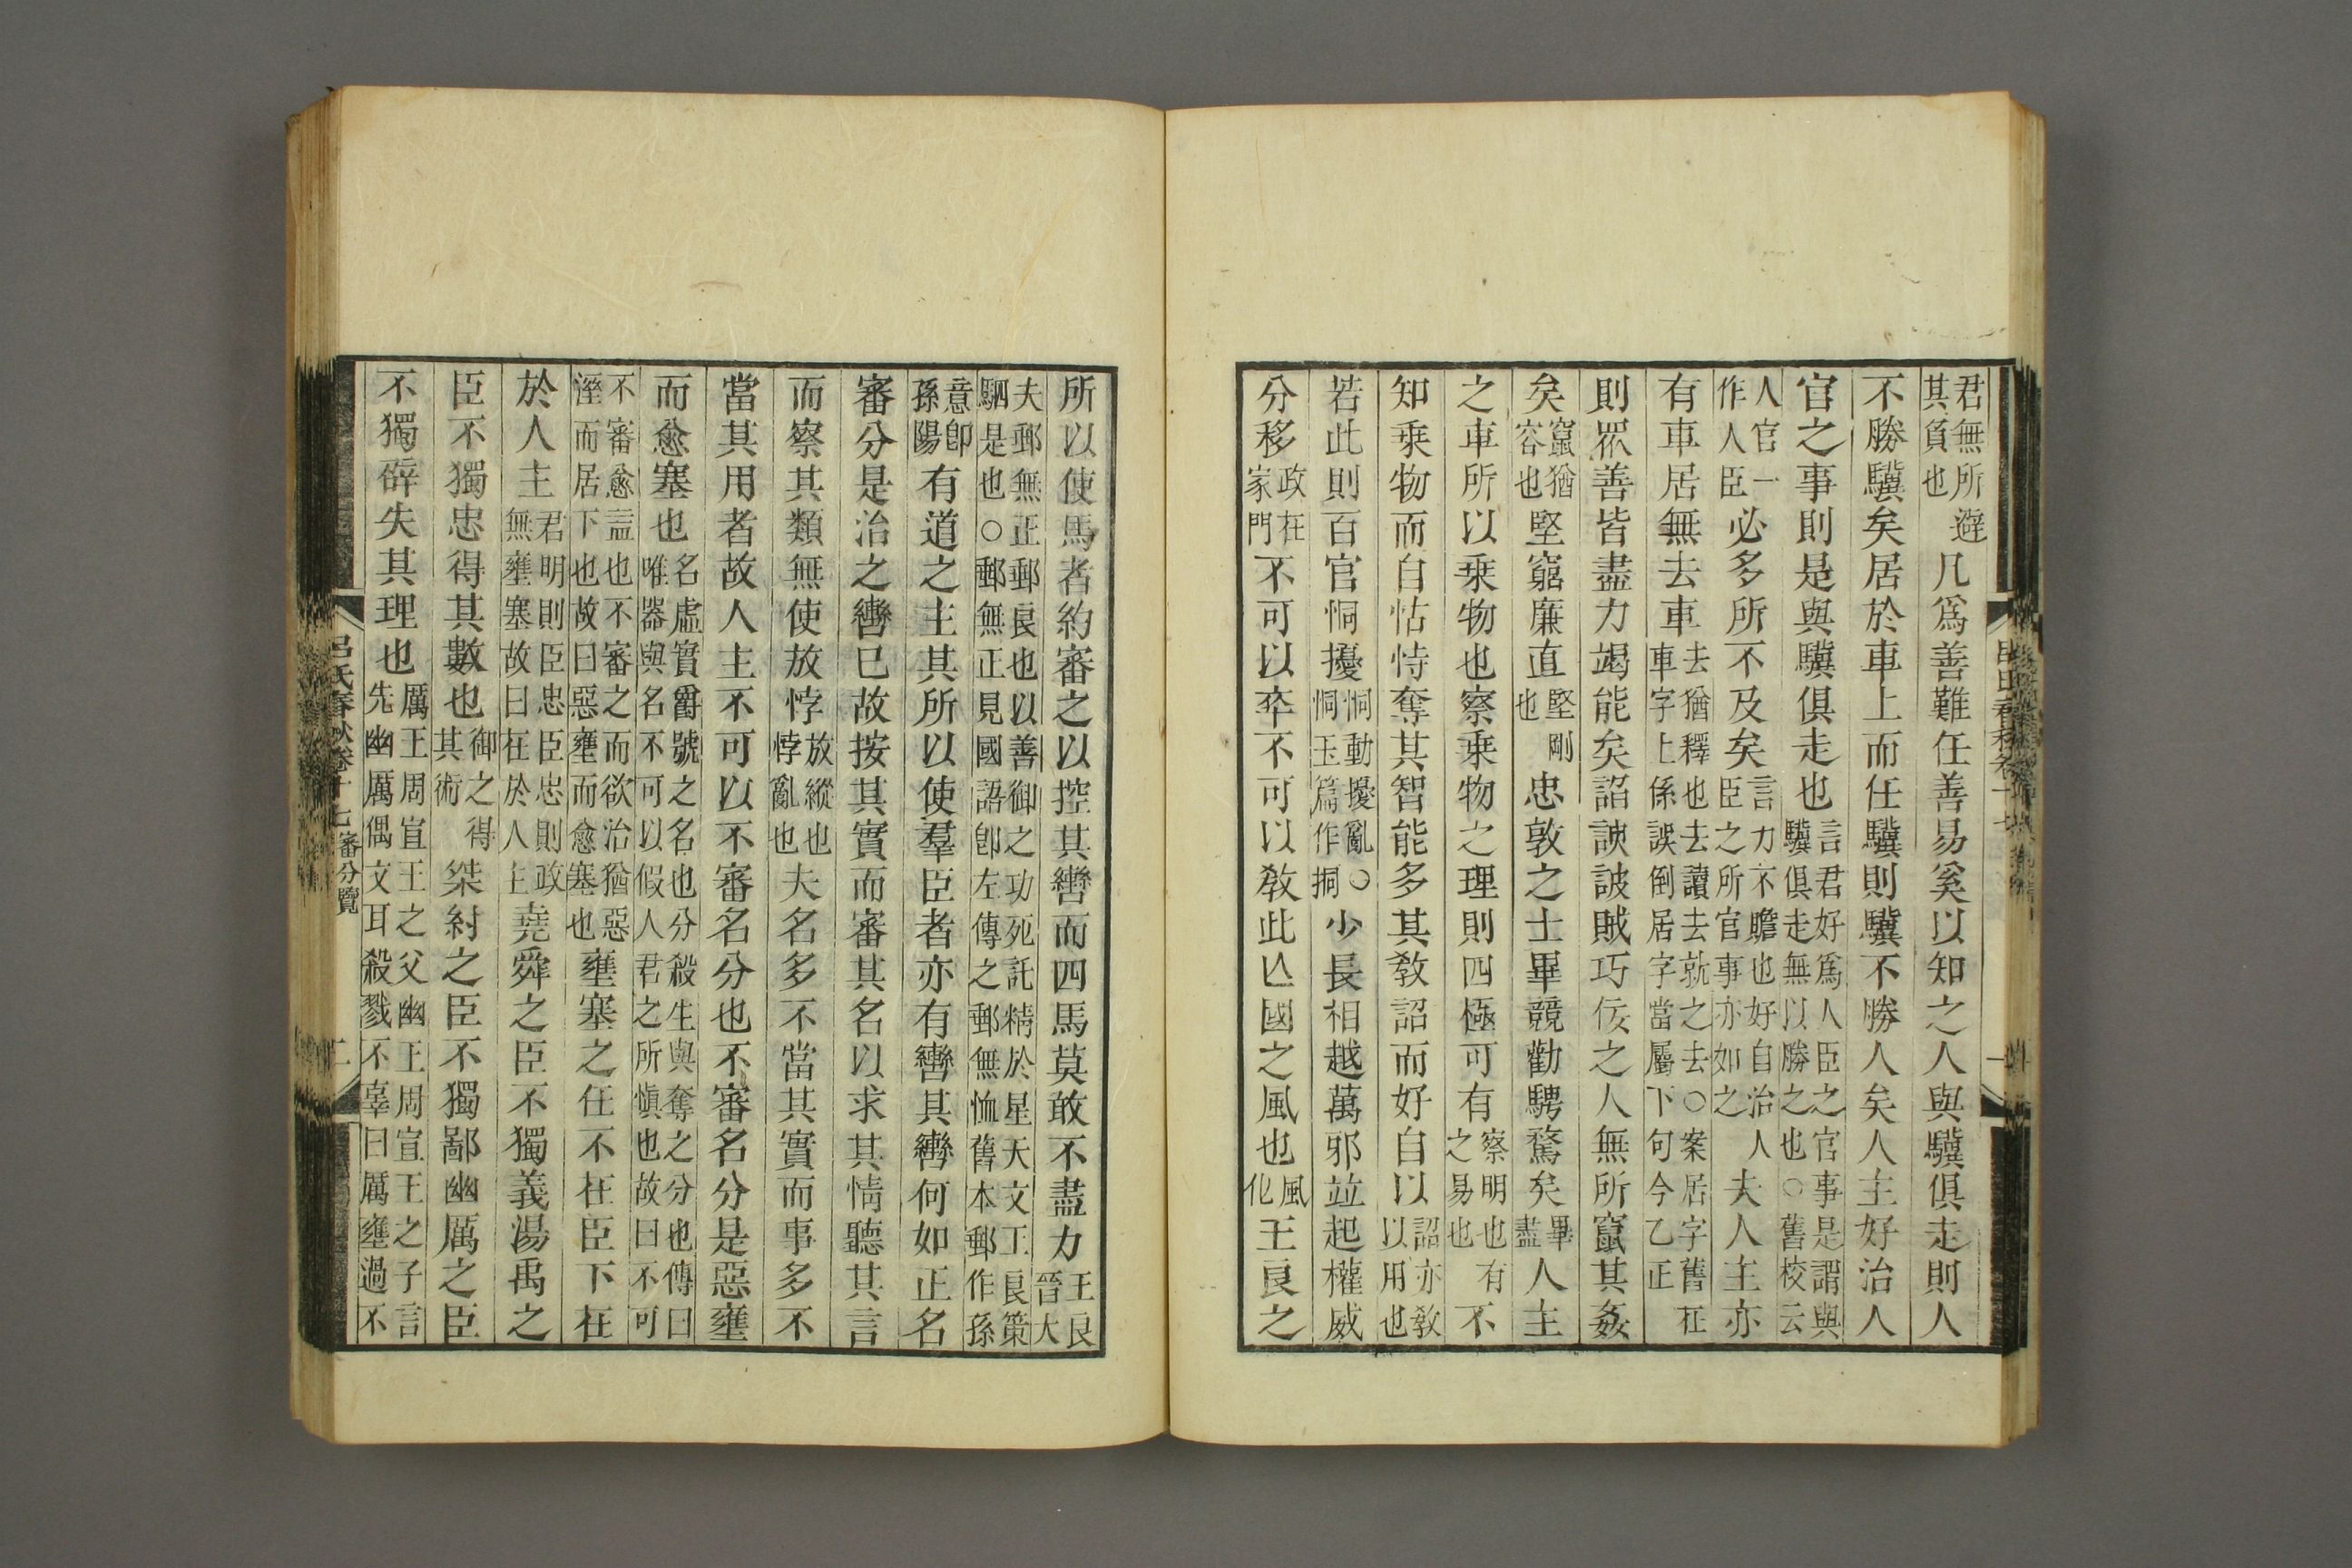 君無所避其負也凡爲善難任善易奚以知之人與驥俱走則人
不勝驥矣居於車上而任驥則驥不勝人矣人主好治人
官之事則是與驥俱走也言君好爲人臣之官事是謂與驥俱走無以勝之也○舊校云
人官一作人臣必多所不及矣言力不贍也好自治人臣之所官事亦如之夫人主亦
有車居無去車去猶釋也去讀去就之去○案居字舊在車字上係誤倒居字當屬下句今乙正
則眾善皆盡力竭能矣諂諛詖賊巧佞之人無所竄其姦
矣竄猶容也堅窮廉直堅剛也忠敦之士畢競勸騁騖矣畢盡人主
之車所以乗物也察乗物之理則四極可有察明也有之易也不
知乗物而自怙恃奪其智能多其敎詔而好自以詔亦敎以用也
若此則百官恫擾恫動擾亂○恫玉篇作挏少長相越萬邪竝起權威
分移政在家門不可以卒不可以敎此亾國之風也風化王良之
所以使馬者約審之以控其轡而四馬莫敢不盡力王良晉大
夫郵無正郵良也以善御之功死託精於星天文王良策駟是也○郵無正見國語卽左傳之郵無恤舊本郵作孫
意卽孫陽有道之主其所以使羣臣者亦有轡其轡何如正名
審分是治之轡已故按其實而審其名以求其情聽其言
而察其類無使放悖放縱也悖亂也夫名多不當其實而事多不
當其用者故人主不可以不審名分也不審名分是惡壅
而愈塞也名虛實爵號之名也分殺生與奪之分也傳曰唯器與名不可以假人君之所愼也故曰不可
不審愈益也不審之而欲治猶惡溼而居下也故曰惡壅而愈塞也壅塞之任不在臣下在
於人主君明則臣忠臣忠則政無壅塞故曰在於人主堯舜之臣不獨義湯禹之
臣不獨忠得其數也御之得其術桀紂之臣不獨鄙幽厲之臣
不獨辟失其理也厲王周宣王之父幽王周宣王之子言先幽厲偶文耳殺戮不辜曰厲壅過不
呂氏春秋卷十七 審分覽
二